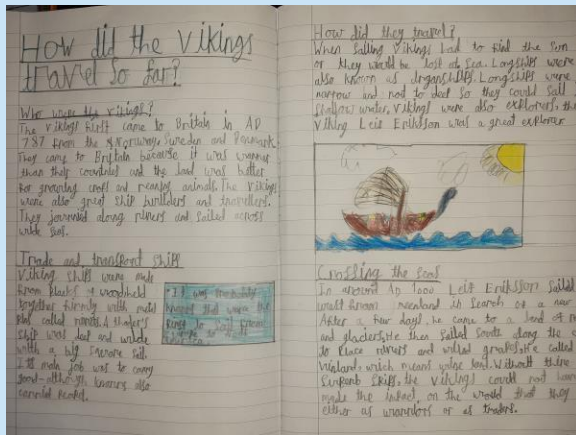 How did the Vikings
travel so far?
Who were the Vikings?
The Vikings first came to Britain in AD
787 from the Norway, Sweden and Denmark.
They came to Britain because it was warmer
than they countries and the land was better
for growing crops and rearing animals. The Vikings
were also great ship builders and travellers.
They journied along rivers and sailed across
wide seas.
Trade and transport ships
Viking ships were made
from planks of wood held
together firmly with metal
pins called rivets. A trader's
ship was deep and
with a big square sail
It's main job was to carry
good - although knarrs also
carried people.
How did they travel?
When sailing Vikings had to find the sun
or they would be lost at sea. Longships were
also known as dragonships. Longships were
narrow and not to deep so they could sail
shallow water. Vikings were also explorers, the
Viking Leif Eriksson was a great explorer
Crossing the seas
In around AD 1000 Leif Eriksson sailed
west from Greenland in search of a new
After a few days, he came to a land of
and glaciers. He then sailed south along the
to place rivers and wild grapes. He called
Vinland, which means wine land. Without there
superb ships, the Vikings could not have
made the impact, on the world that they
either as warriors or as traders.